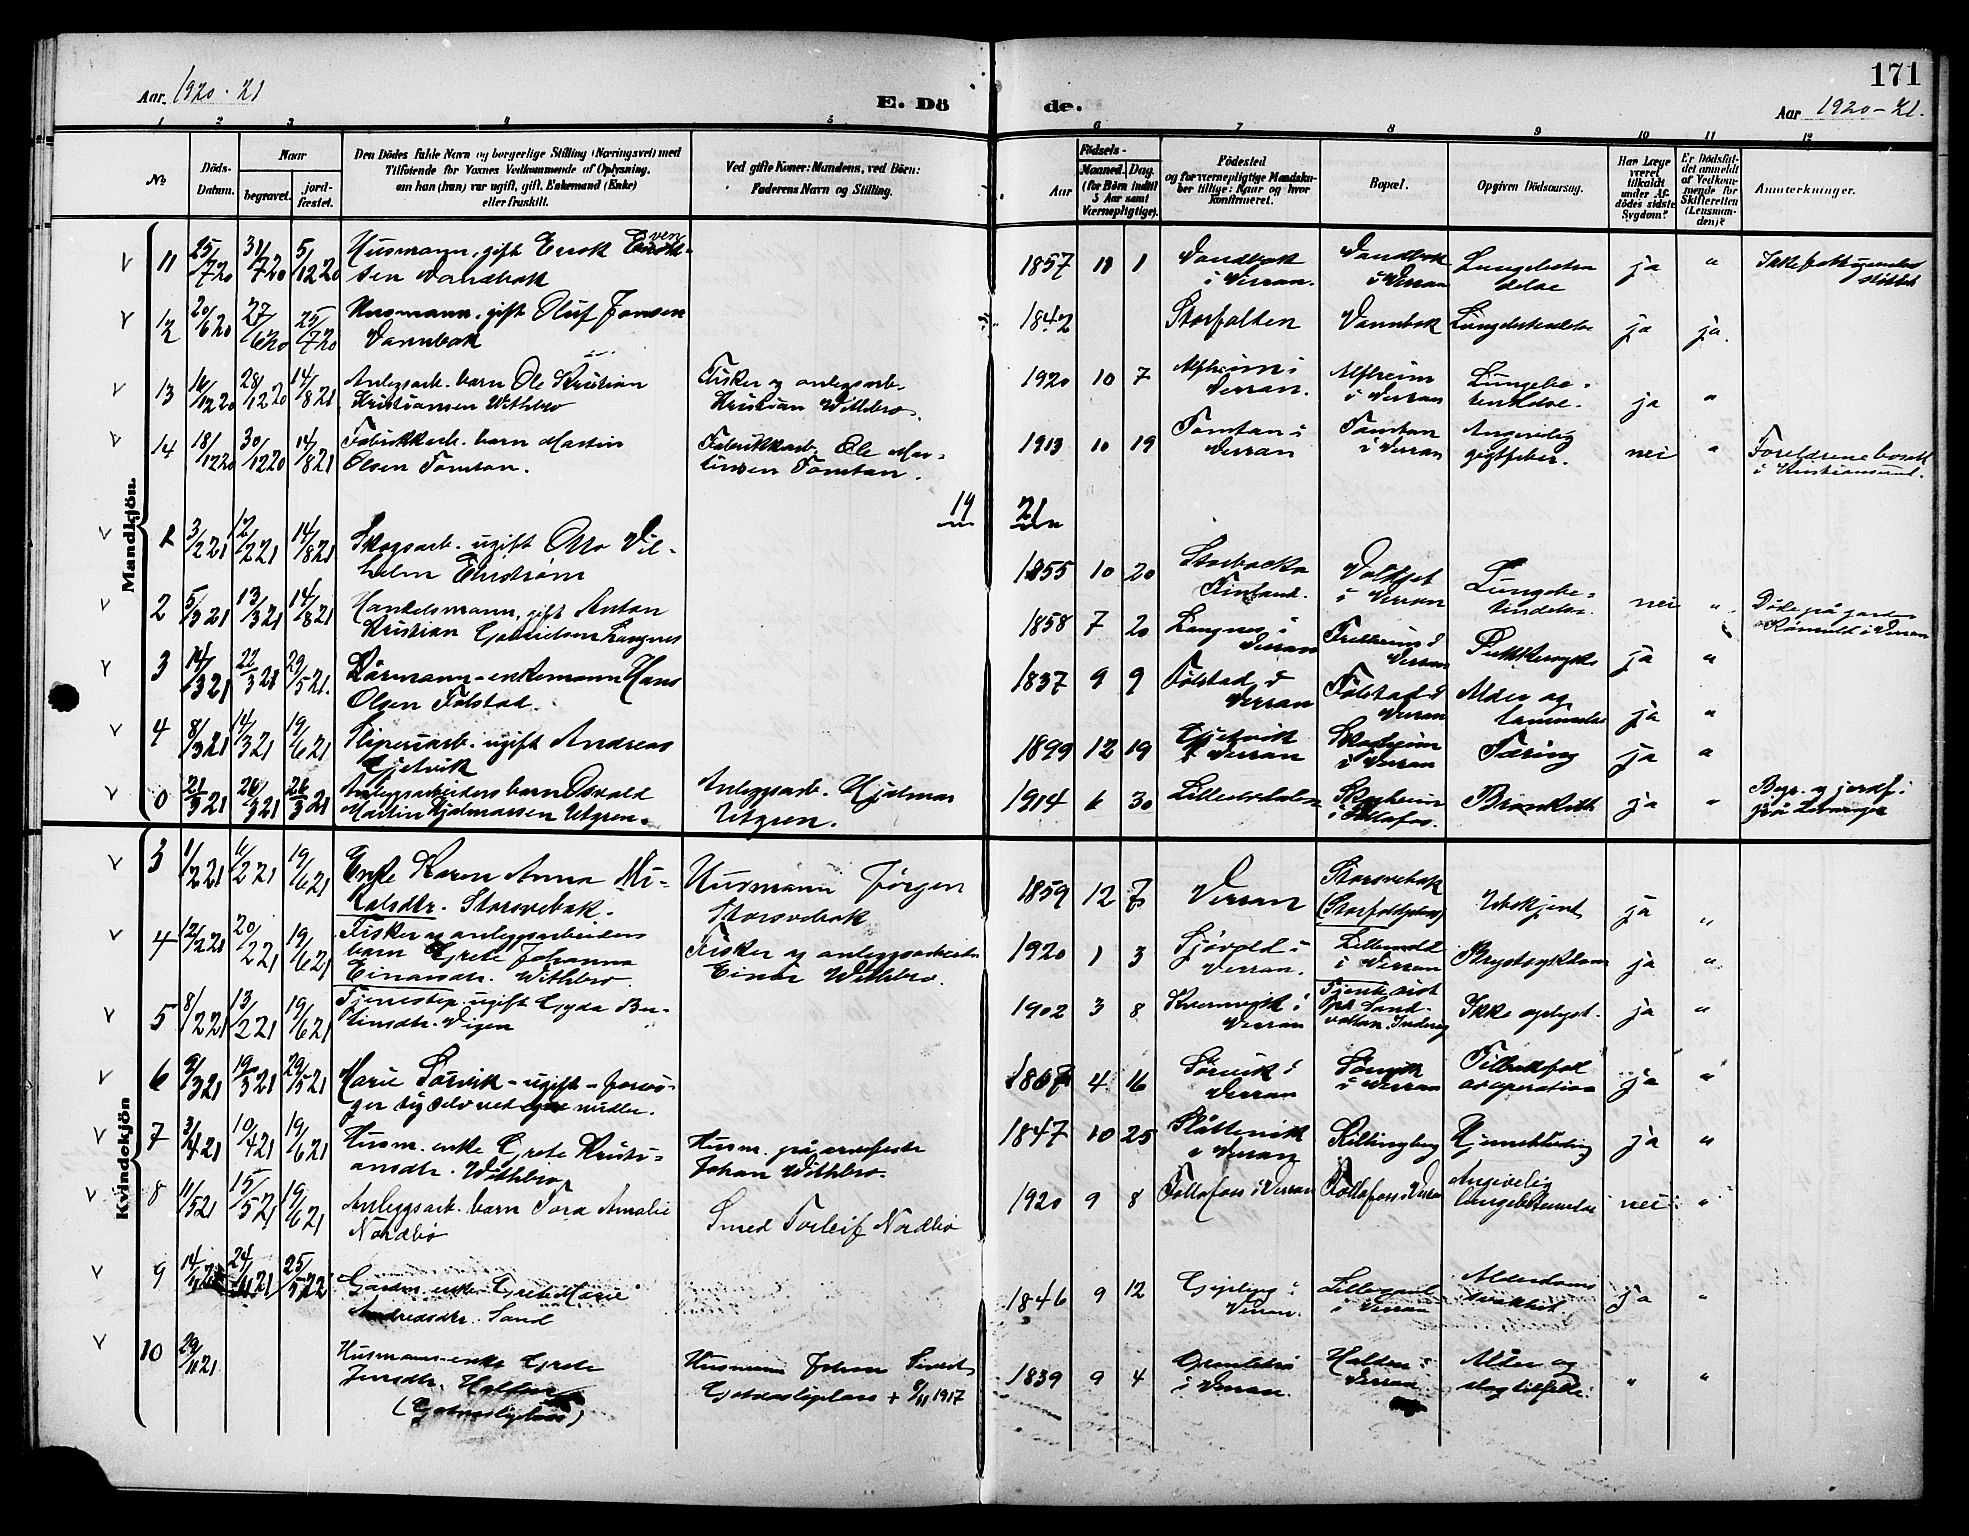 171
Aar. 1920-21
E. Dö
de.
Aar 1920-21.
1 2 3 4 5 6 7 8 9 10 11 12
No
Döds-
Datum.
Naar
begravet.
jord-
fæstet.
Den Dödes fulde Navn og borgerlige Stilling (Næringsvei) med
Tilföiende for Voxnes Vedkommende af Oplysning,
om han (hun) var ugift, gift, Enkemand (Enke)
eller fraskilt.
Ved gifte Koner: Mandens, ved Börn:
Faderens Navn og Stilling.
Födsels-
Aar
Maaned. Dag.
(for Börn indtil
5 Aar samt
Værnepligtige).
Födested
og for værnepligtige Mandskaber tillige: Naar og hvor
konfirmeret.
Bopæl.
Opgiven Dödsaarsag.
Har Læge
været
tilkaldt
under Af-
dödes sidste
Sygdom?
Er Dödsfal-
det anmeldt
af Vedkom-
mende for
Skifteretten
(Lensman-
den)?
Anmærkninger.
Mandkjön.
11 25/7 20 31/7 20 5/12 20 Husmann, gift Enok Even-
sen Vandbak
1857 11 1 Vandbak
i Verran. Vandbak
i Verran Lungebeten
delse ja "
12 20/6 20 27/6 20 25/7 20 Husmann, gift Oluf Jonsen
Vannbak
1842 Storfalten Vannbak ja ja.
13 16/12 20 28/12 20 14/8 21 Anlegsarb. barn Ole Kristian
Kristiansen Withbro
Fisker og anlegsarb.
Kristian Withbro.
1920 10 7 Alfheim i
Verran. Alfheim
i Verran Lungebe-
tendelse. ja "
14 18/12 20 30/12 20 14/8 21 Fabrikkarb. barn Martin
Olsen Tomtan.
Fabrikkarb. Ole Mar-
tinsen Tomtan.
1913 10 19 Tomtan i
Verran Tomtan
i Verran Angivelig
gigtfeber. nei " Foreldrene bosatt
i Kristiansund.
19 21
1 3/2 21 12/2 21 14/8 21 Skogsarb. ugift Otto Vil-
helm Ehrstrøm
1855 10 20 Storbacka
Finland. i Verran Lungebe-
tendelse. nei "
2 5/3 21 13/3 21 14/8 21 Handelsmann, gift Anton
Kristian Langnes
1858 7 20 Langnes i
Verran Verran Sukkersyke ja " Døde på garden
i Verran
3 14/3 21 22/3 21 29/5 21. Kårmann - enkemann Hans
Olsen Følstad.
1837 9 9 Følstad i
Verran Følstad i
Verran Alder og
lammelse ja "
4 8/3 21 14/3 21 19/6 21 Sliperiarb. ugift Andreas
Gjetvik
1899 12 19 Gjetvik
i Verran Skogheim
i Verran Tæring ja "
0 21/3 21 26/3 21 26/3 21 Anleggsarbeiders barn Osvald
Martin Hjalmarssen Utgren.
Anleggsarb. Hjalmar
Utgren.
1914 6 30 Lilledalen Skogheim
i Follafos. Bronkitt ja " Begr. og jordf. i
Kvindekjön
3 1/2 21 6/2 21 19/6 21 Enke Karen Anna Mi-
kalsdtr. Storsvebak.
Husmann Jørgen
Storsvebak
1859 12 7 Verran Storsvebak Ubekjent ja "
4 12/2 21 20/2 21 19/6 21 Fisker og anleggsarbeiders
barn Grete Johanna
Einarsdtr. Withbro.
Fisker og anleggsarbeider
Einar Withbro.
1920 1 3 Sjøvold i
Verran. i Verran Brystsykdom ja "
5 8/2 21 13/2 21 19/6 21 Tjenestep. ugift Gyda Be-
Vigen
1902 3 8 Kvernvik i
Verran Ikke oplyst. ja "
6 9/3 21 19/3 21 29/5 21 Marie Sørvik - ugift - forsør-
ger sig selv ved egne midler.
1867 4 16 Sørvik i
Verran Sørvik
i Verran Tilbakefal
av operation ja "
7 3/4 21 10/4 21 19/6 21 Husm. enke Grete Kristi-
ansdtr. Withbro
Husm. på arvefeste
Johan Withbro.
1847 10 25 Slåttenvik
i Verran Killingberg ja "
8 11/5 21 15/5 21 19/6 21 Anleggsarb. barn Tora Amalie
Nordbø
Smed Torleif Nordbø
1920 9 8 Follafoss i Verran Follafoss i Verran Angivelig
lungebetennelse nei "
9 14/11 21 24/11 21 25/5 22 Gårdm. enke Grete Marie
Andreasdtr. Sand
1846 9 12 i
Verran. i Verran Alderdoms
svakhet ja "
10 29/11 21 Husmanns-enke Grete
Jensdtr. Halden
Husmann Johan Sivert
+ 8/11 1917
1839 9 4 i Verran. Halden i
Verran Alder og
slagtilfelle. " "